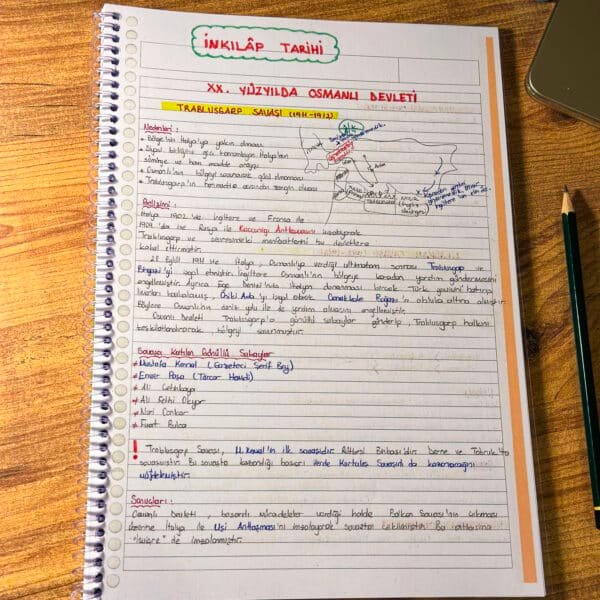 İNKILÂP TARİHİ
XX. YÜZYILDA OSMANLI DEVLETİ
TRABLUSGARP SAVAŞI (1911-1912)
Nedenleri:
* Bölge'nin İtalya'ya yakın olması
* Siyasi birliğini geç tamamlayan İtalya'nın
sömürge ve ham madde arayışı
* Osmanlı'nın bölgeyi savunacak gücü olmaması
* Trablusgarp'ın hammadde açısından zengin olması
Gelişimi:
İtalya 1902'da İngiltere ve Fransa ile
1909'da ise Rusya ile Racconigi Antlaşmasını imzalayarak
Trablusgarp ve çevresindeki menfaatlerini bu devletlere
kabul ettirmiştir.
28 Eylül 1911'de İtalya, Osmanlı'ya verdiği ultimatom sonrası Trablusgarp ve
Bingazi'yi işgal etmiştir. İngiltere Osmanlı'nın bölgeye karadan yardım göndermesini
engellemiştir. Ayrıca Ege Denizi'nda İtalyan donanması birçok Türk gemisini batırıp
limanları bombalamış, Oniki Ada'yı işgal ederek Çanakkale Boğazı'nı abluka altına almıştır.
Böylece Osmanlı'nın deniz yolu ile de yardım almasını engellemiştir.
Osmanlı Devleti Trablusgarp'a gönüllü subaylar gönderip, Trablusgarp halkını
teşkilatlandırarak bölgeyi savunmuştur.
Savaşa Katılan Gönüllü Subaylar
* Mustafa Kemal (Gazeteci Şerif Bey)
* Enver Paşa (Tüccar Hamdi)
* Ali Çetinkaya
* Ali Fethi Okyar
* Nuri Conker
* Fuat Bulca
! Trablusgarp Savaşı, M. Kemal'in ilk savaşıdır. Derne ve Tobruk'ta
savaşmıştır. Bu savaşta kazandığı başarı ileride Kurtuluş Savaşını da kazanacağını
müjdelemiştir.
Sonuçları:
Osmanlı Devleti, başarılı mücadeleler verdiği halde Balkan Savaşı'nın çıkması
üzerine İtalya ile Uşi Antlaşması'nı imzalayarak savaştan çekilmiştir. Bu antlaşma
"İsviçre" de imzalanmıştır.